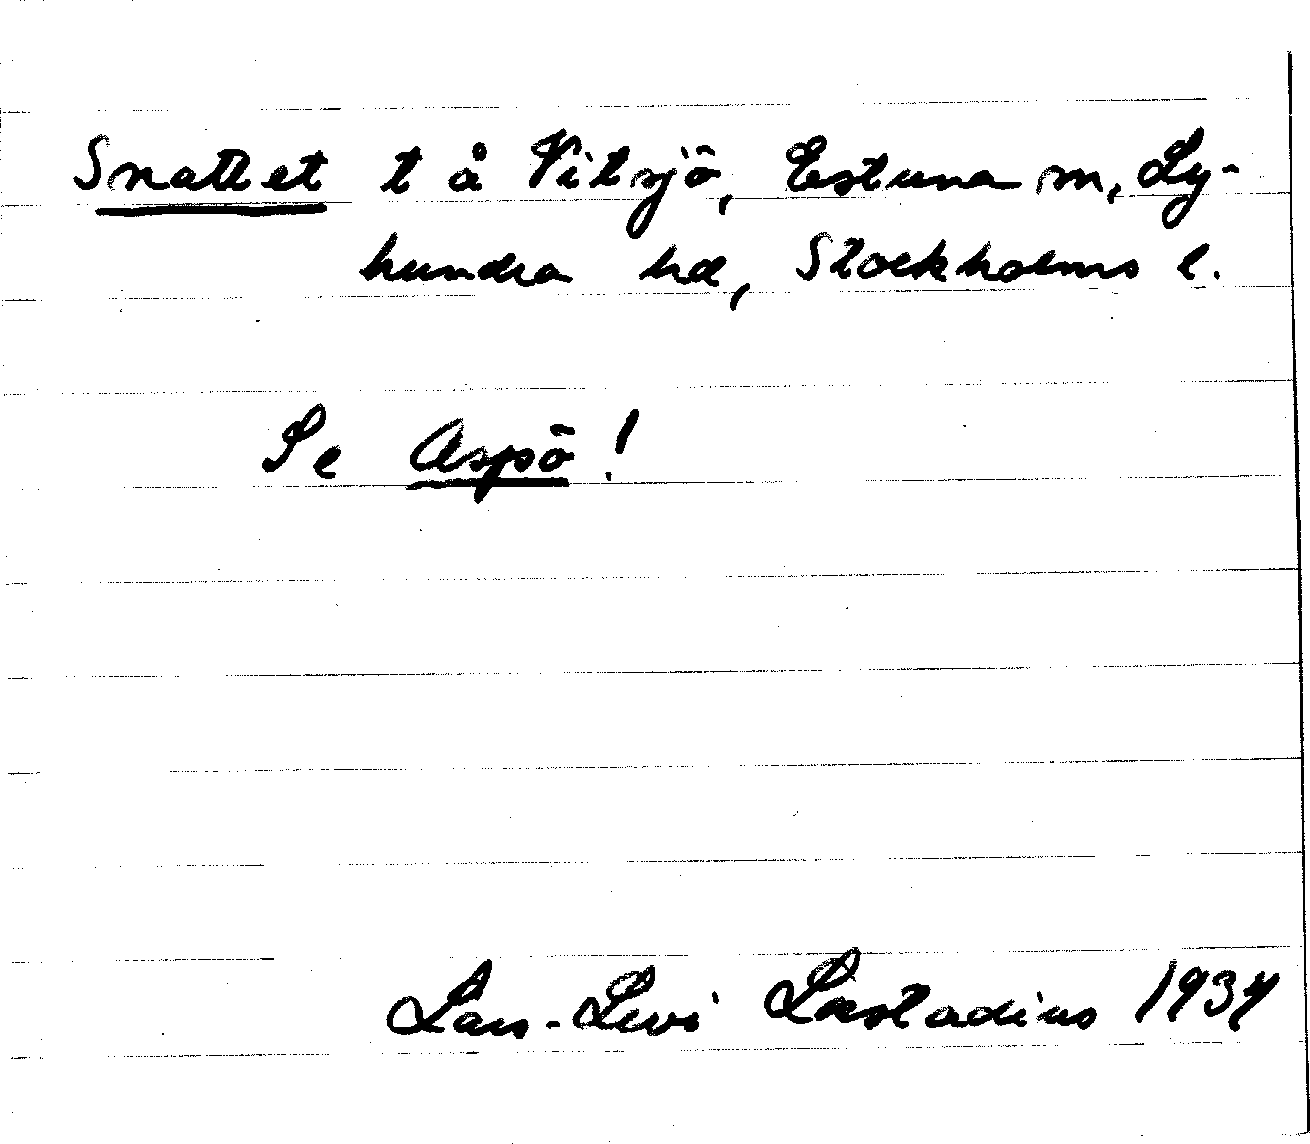 Snattlet t å Vitsjö, Estuna sn, Ly-
hundra hd, Stockholms l.
Se Aspö!
Lars-Levi Læstadius 1934